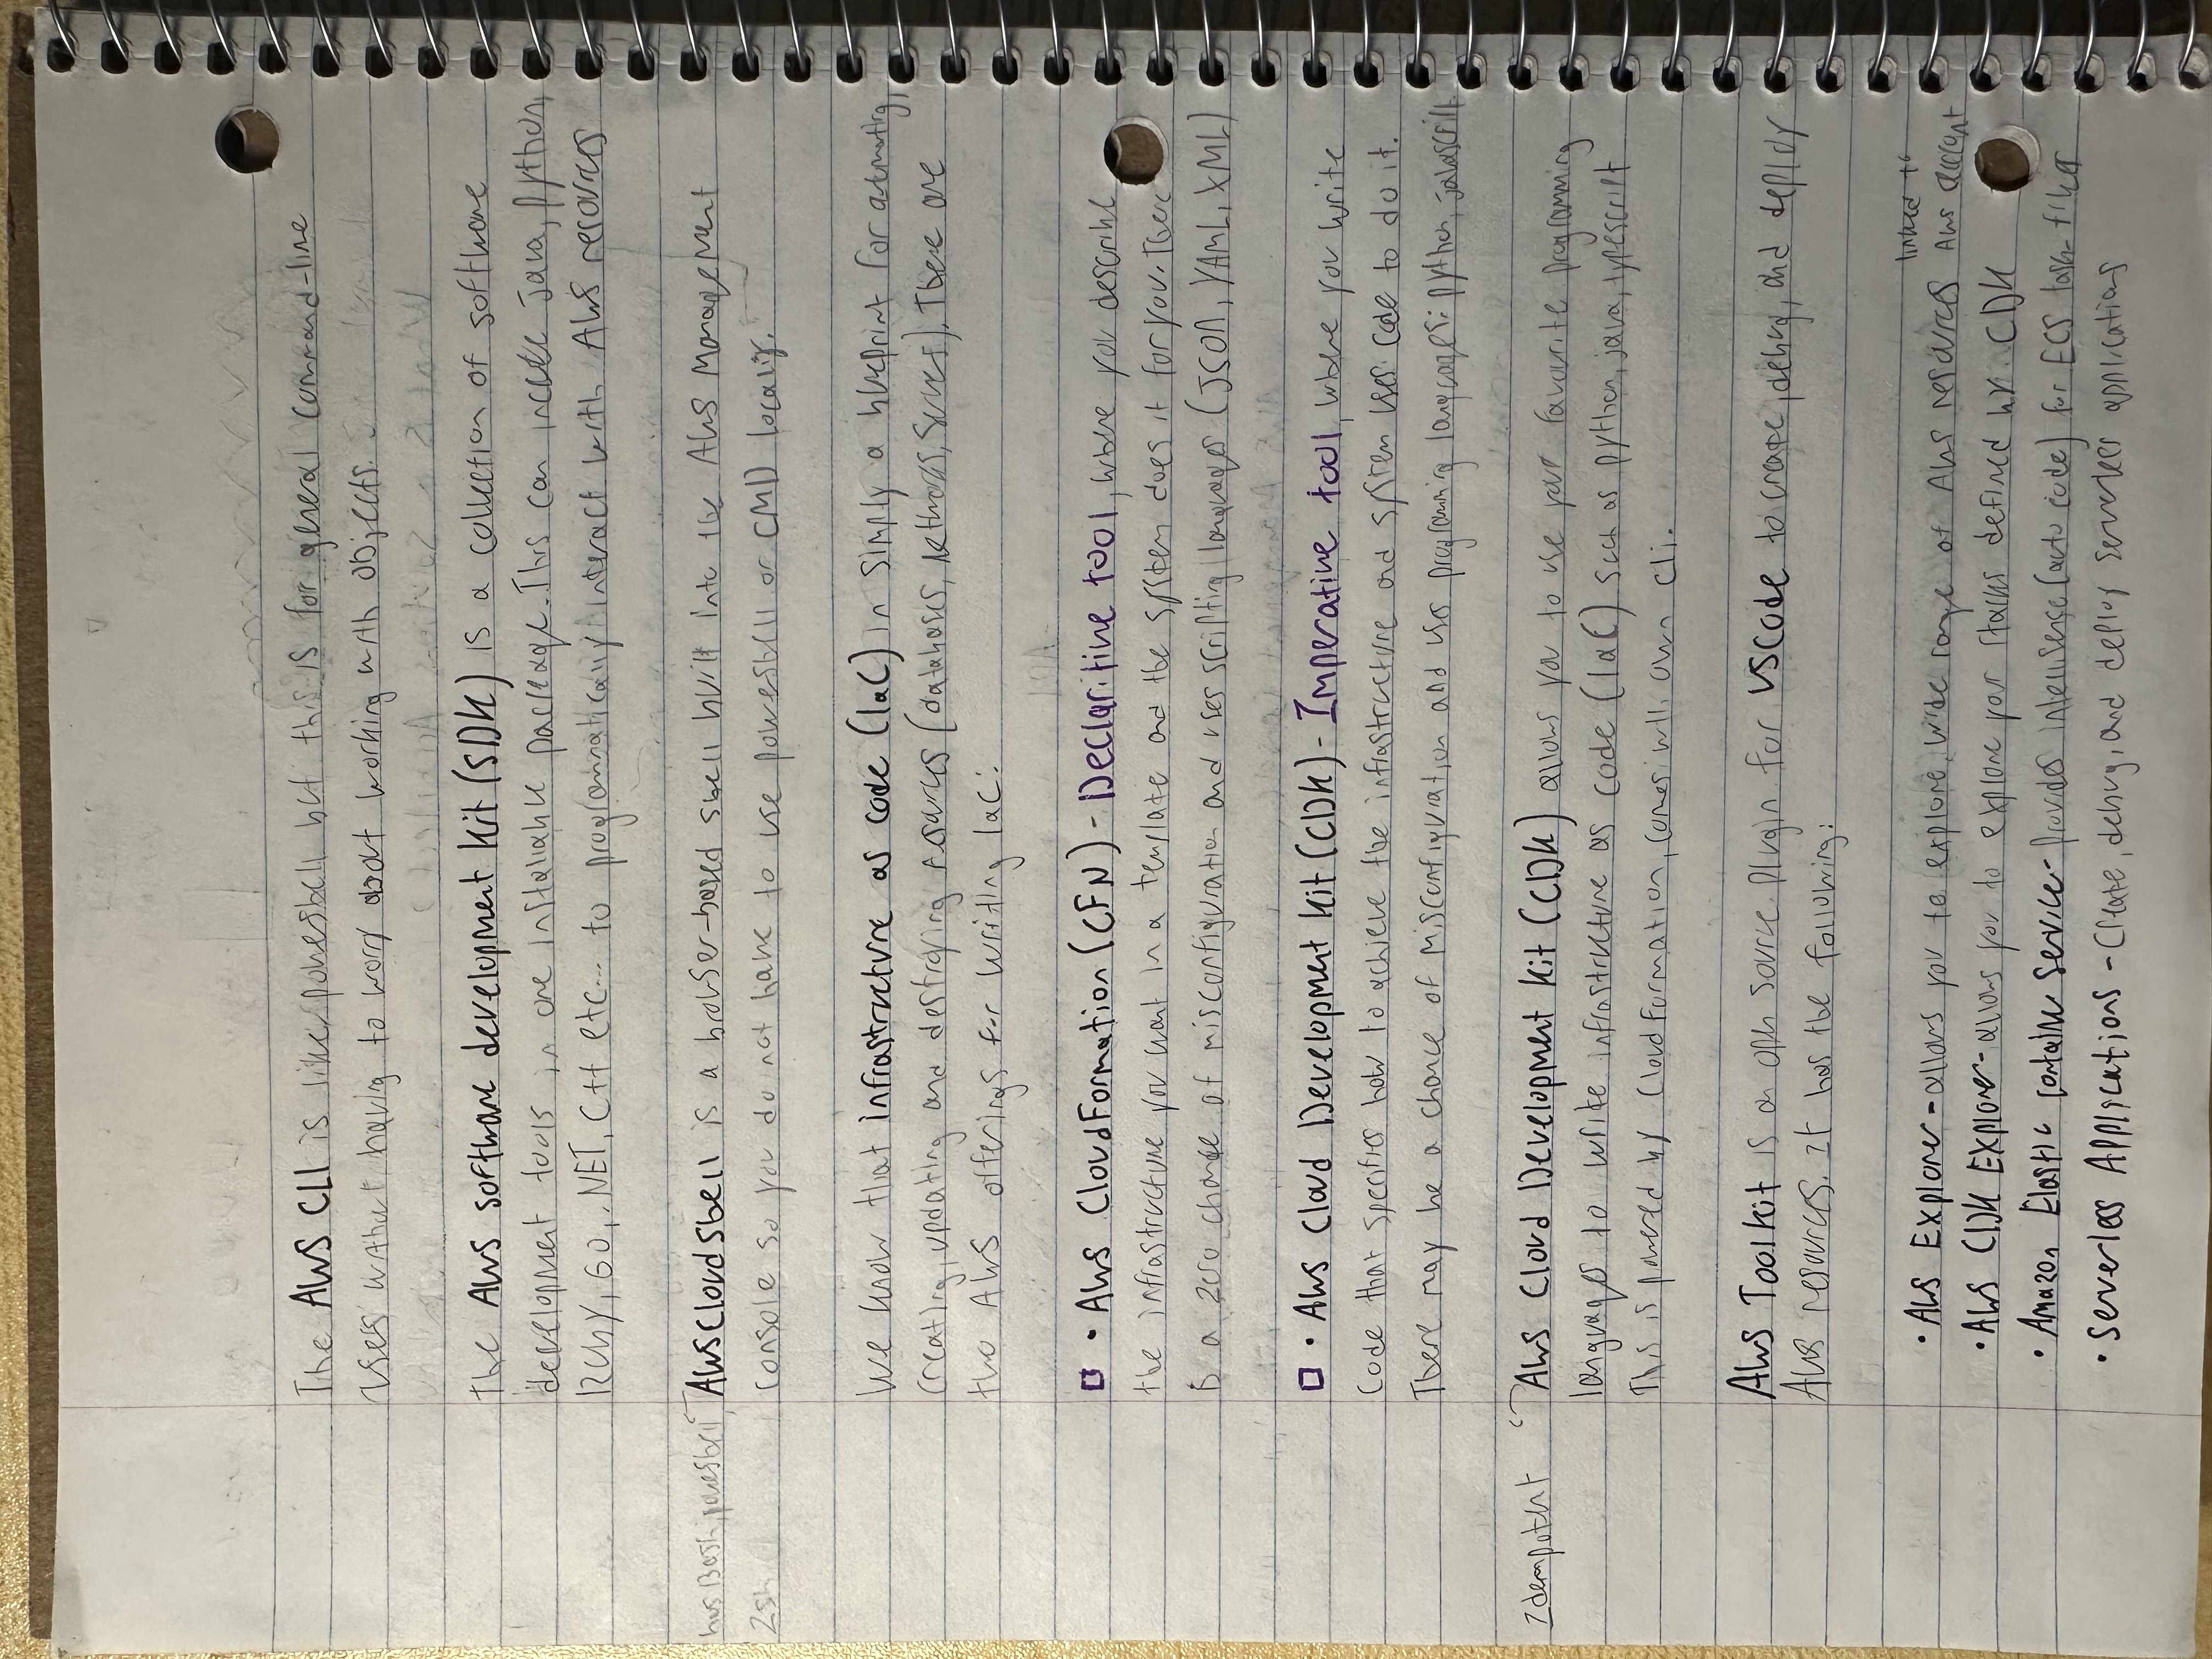 The AWS CLI is like powershell but this is for general command-line
uses without having to worry about working with objects.
The AWS software development kit (SDK) is a collection of software
development tools in one installable package. This can include java, python,
Ruby, GO, .NET, C++ etc... to programmatically interact with AWS resources
has Bash, powershell,
Zsh
AWS Cloudshell is a browser-based shell built into the AWS Management
console so you do not have to use powershell or CMD locally.
We know that infrastructure as code (IaC) in simply a blueprint for automating,
creating, updating and destroying resources (databases, networks, servers). There are
two AWS offerings for writing IaC:
• AWS CloudFormation (CFN) - Declaritive tool, where you describe
the infrastructure you want in a template and the system does it for you. There
is a zero chance of misconfiguration and uses scripting languages (JSON, YAML, XML)
• AWS Cloud Development Kit (CDK) - Imperative tool, where you write
code that specifies how to achieve the infrastructure and system uses code to do it.
There may be a chance of misconfiguration and uses programming languages: python, javascript
Idempotent
AWS Cloud Development Kit (CDK) allows you to use your favourite programming
languages to write infrastructure as code (IaC) such as python, java, typescript
This is powered by CloudFormation, comes with own cli.
AWS Toolkit is an open source plugin for VSCode to create, debug, and deploy
AWS resources. It has the following:
• AWS Explorer - allows you to explore wide range of AWS resources linked to AWS account
• AWS CDK Explorer - allows you to explore your stacks defined by CDK
• Amazon Elastic container service - provides intellisense (auto code) for ECS task-files
• Serverless Applications - Create, debug, and deploy serverless applications